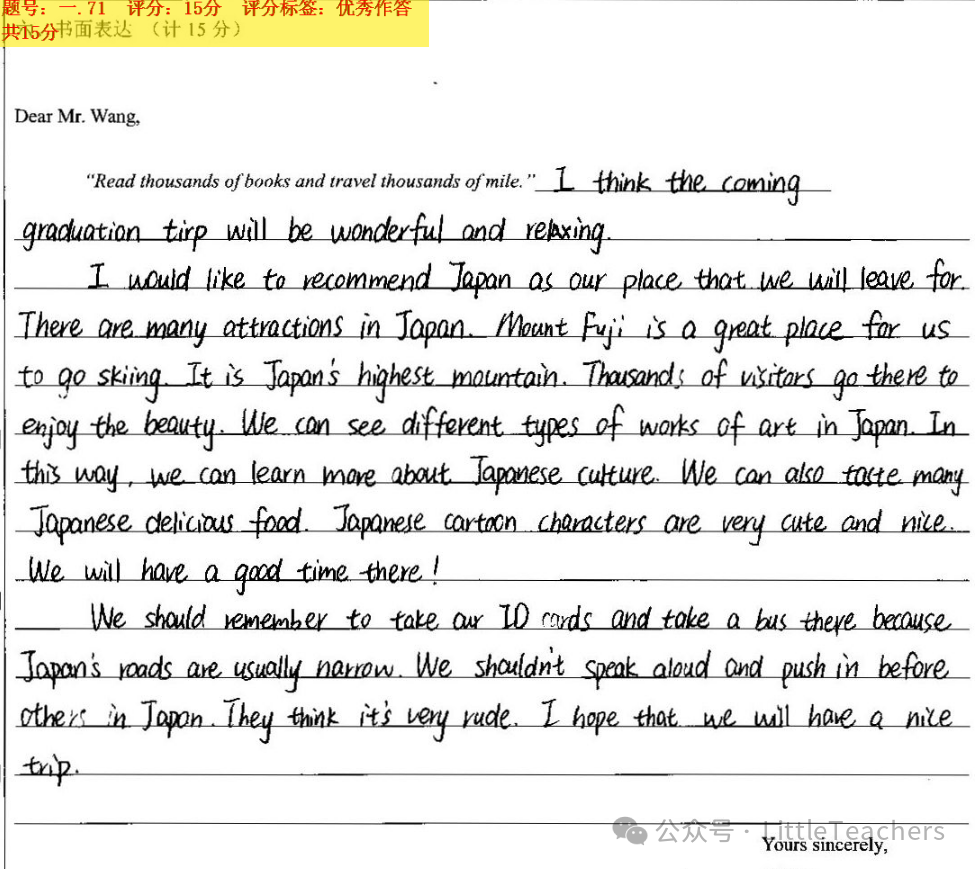 题号：一.71 评分：15分 评分标签：优秀作答
共15分
书面表达 （计 15 分）
Dear Mr. Wang,
"Read thousands of books and travel thousands of mile." I think the coming
graduation tirp will be wonderful and relaxing.
I would like to recommend Japan as our place that we will leave for.
There are many attractions in Japan. Mount Fuji is a great place for us
to go skiing. It is Japan's highest mountain. Thousands of visitors go there to
enjoy the beauty. We can see different types of works of art in Japan. In
this way, we can learn more about Japanese culture. We can also taste many
Japanese delicious food. Japanese cartoon characters are very cute and nice.
We will have a good time there!
We should remember to take our ID cards and take a bus there because
Japan's roads are usually narrow. We shouldn't speak aloud and push in before
others in Japan. They think it's very rude. I hope that we will have a nice
trip.
公众号 · LittleTeachers
Yours sincerely,